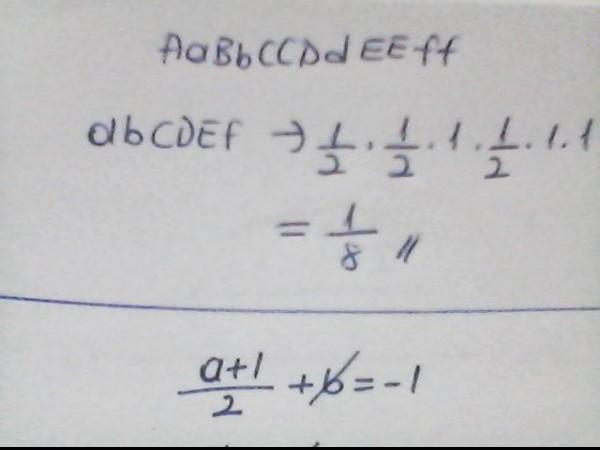 AaBbCCDdEEff
abCDEf → 1/2 . 1/2 . 1 . 1/2 . 1 . 1
= 1/8 //
(a+1)/2 + b = -1